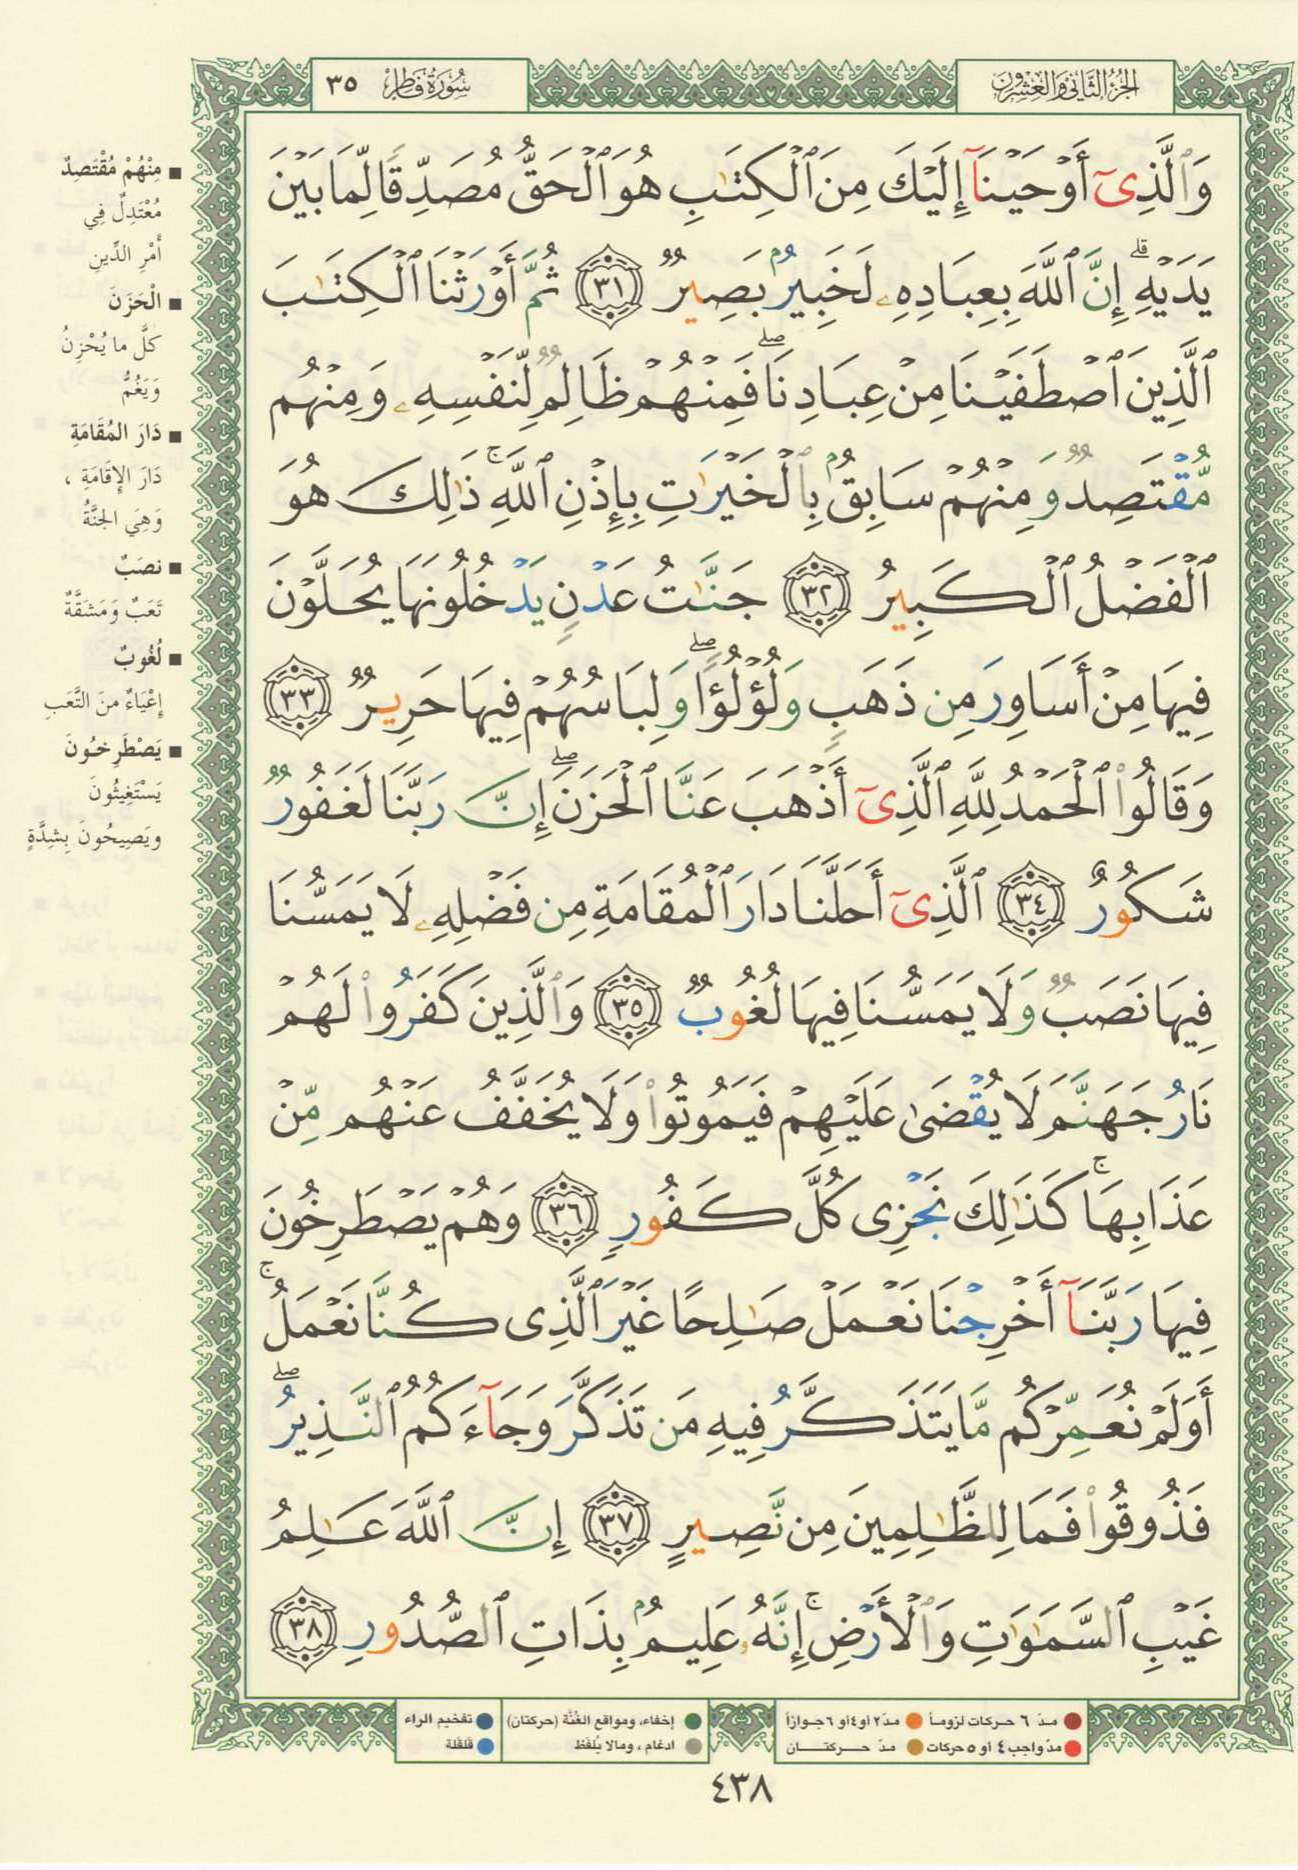 الجزء الثاني والعشرون
سورة فاطر ٣٥
وَٱلَّذِىٓ أَوْحَيْنَآ إِلَيْكَ مِنَ ٱلْكِتَـٰبِ هُوَ ٱلْحَقُّ مُصَدِّقًا لِّمَا بَيْنَ
يَدَيْهِ ۗ إِنَّ ٱللَّهَ بِعِبَادِهِۦ لَخَبِيرٌۢ بَصِيرٌ ٣١ ثُمَّ أَوْرَثْنَا ٱلْكِتَـٰبَ
ٱلَّذِينَ ٱصْطَفَيْنَا مِنْ عِبَادِنَا ۖ فَمِنْهُمْ ظَالِمٌ لِّنَفْسِهِۦ وَمِنْهُم
مُّقْتَصِدٌ وَمِنْهُمْ سَابِقٌۢ بِٱلْخَيْرَٰتِ بِإِذْنِ ٱللَّهِ ۚ ذَٰلِكَ هُوَ
ٱلْفَضْلُ ٱلْكَبِيرُ ٣٢ جَنَّـٰتُ عَدْنٍ يَدْخُلُونَهَا يُحَلَّوْنَ
فِيهَا مِنْ أَسَاوِرَ مِن ذَهَبٍ وَلُؤْلُؤًا ۖ وَلِبَاسُهُمْ فِيهَا حَرِيرٌ ٣٣
وَقَالُوا۟ ٱلْحَمْدُ لِلَّهِ ٱلَّذِىٓ أَذْهَبَ عَنَّا ٱلْحَزَنَ ۖ إِنَّ رَبَّنَا لَغَفُورٌ
شَكُورٌ ٣٤ ٱلَّذِىٓ أَحَلَّنَا دَارَ ٱلْمُقَامَةِ مِن فَضْلِهِۦ لَا يَمَسُّنَا
فِيهَا نَصَبٌ وَلَا يَمَسُّنَا فِيهَا لُغُوبٌ ٣٥ وَٱلَّذِينَ كَفَرُوا۟ لَهُمْ
نَارُ جَهَنَّمَ لَا يُقْضَىٰ عَلَيْهِمْ فَيَمُوتُوا۟ وَلَا يُخَفَّفُ عَنْهُم مِّنْ
عَذَابِهَا ۚ كَذَٰلِكَ نَجْزِى كُلَّ كَفُورٍ ٣٦ وَهُمْ يَصْطَرِخُونَ
فِيهَا رَبَّنَآ أَخْرِجْنَا نَعْمَلْ صَـٰلِحًا غَيْرَ ٱلَّذِى كُنَّا نَعْمَلُ ۚ
أَوَلَمْ نُعَمِّرْكُم مَّا يَتَذَكَّرُ فِيهِ مَن تَذَكَّرَ وَجَآءَكُمُ ٱلنَّذِيرُ ۖ
فَذُوقُوا۟ فَمَا لِلظَّـٰلِمِينَ مِن نَّصِيرٍ ٣٧ إِنَّ ٱللَّهَ عَـٰلِمُ
غَيْبِ ٱلسَّمَـٰوَٰتِ وَٱلْأَرْضِ ۚ إِنَّهُۥ عَلِيمٌۢ بِذَاتِ ٱلصُّدُورِ ٣٨
■ مِنْهُمْ مُقْتَصِدٌ
مُعْتَدِلٌ فِي
أَمْرِ الدِّينِ
■ الْحَزَنَ
كلَّ ما يُحْزِنُ
وَيَغُمُّ
■ دَارَ المُقَامَةِ
دَارَ الإِقَامَةِ ،
وَهِيَ الجَنَّةُ
■ نصَبٌ
تَعَبٌ وَمَشَقَّةٌ
■ لُغُوبٌ
إِعْيَاءٌ منَ التَّعَبِ
■ يَصْطَرِخُونَ
يَسْتَغِيثُونَ
ويَصِيحُونَ بِشِدَّةٍ
مدّ ٦ حركات لزوماً
مدّ٢ أو٤أو ٦جوازاً
إخفاء، ومواقع الغُنَّة (حركتان)
تفخيم الراء
مدّواجب٤ أو ٥حركات
مدّ حـركتـــان
ادغام ، ومالا يُلفَظ
قلقلة
٤٣٨